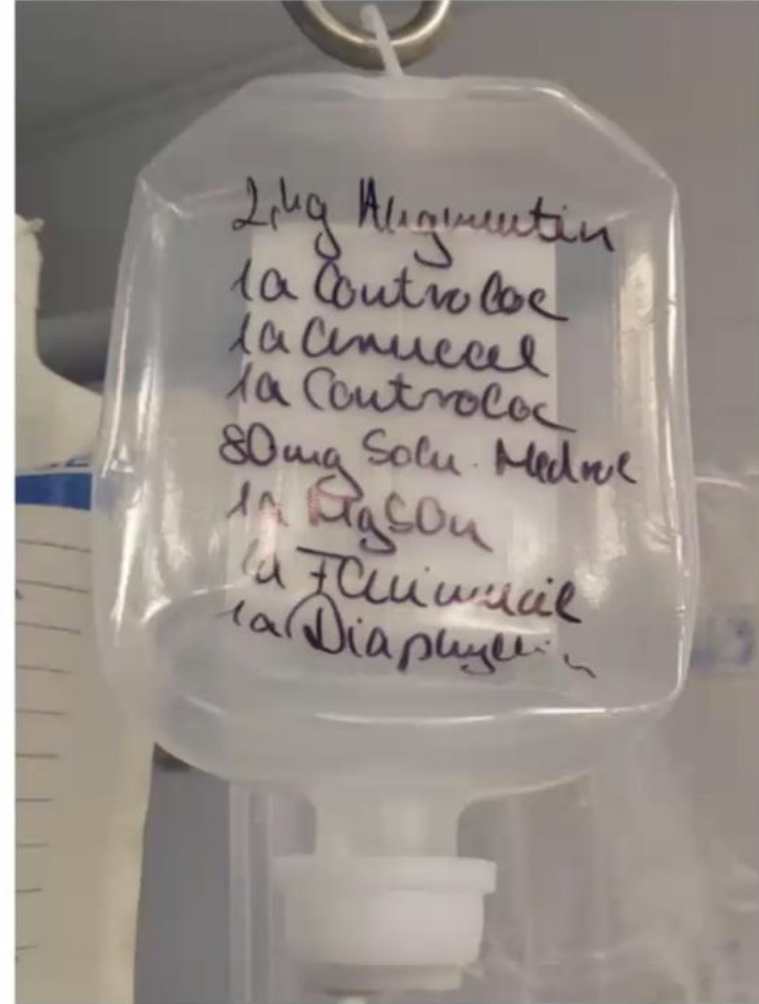 2,4g Augmentin
1a Controloc
1a Cerucal
1a Controloc
80mg Solu. Medrol
1a MgSO4
1a Fluimucil
1a Diaphyllin